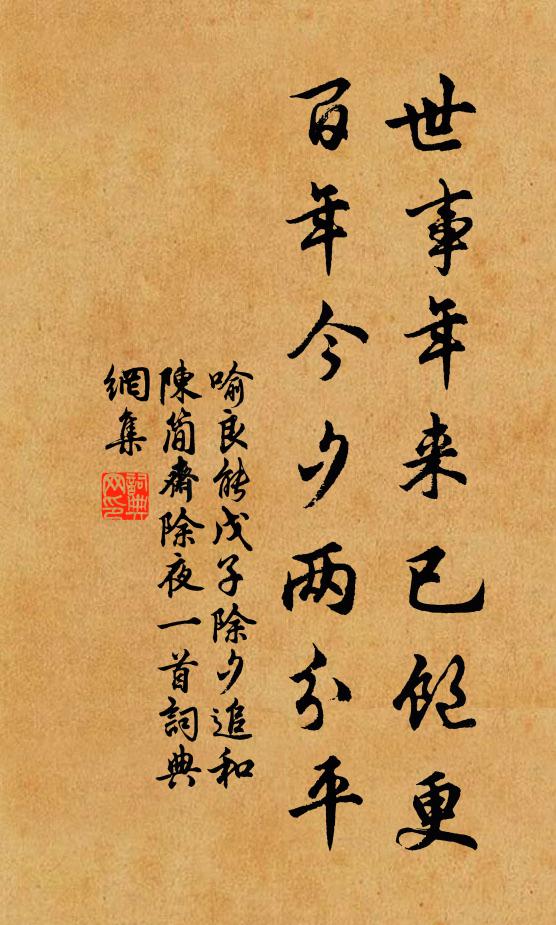 世事年来已饱更
百年今夕两分平
喻良能戊子除夕追和
陳简齋除夜一首詞典
網集
詞典网印